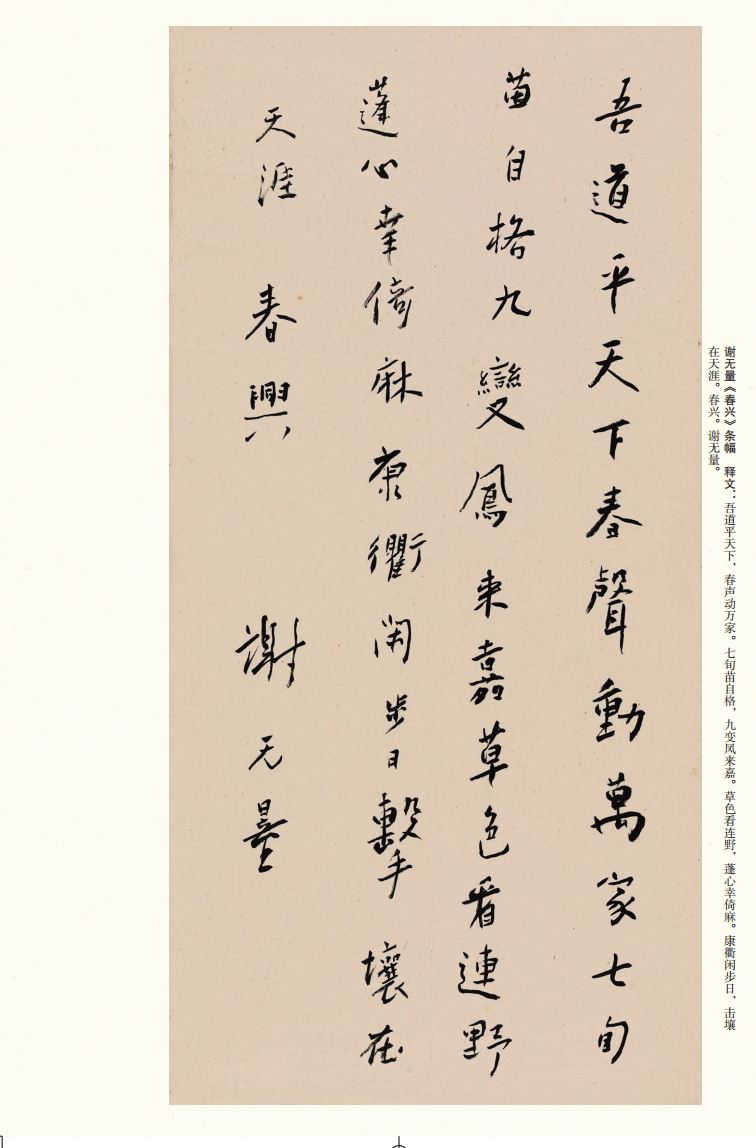 吾道平天下春聲動萬家七旬
苗自格九變鳳来嘉草色看連野
蓬心幸倚麻康衢閑步日擊壤在
天涯 春興 謝无量
谢无量《春兴》条幅 释文：吾道平天下，春声动万家。七旬苗自格，九变凤来嘉。草色看连野，蓬心幸倚麻。康衢闲步日，击壤
在天涯。春兴。谢无量。